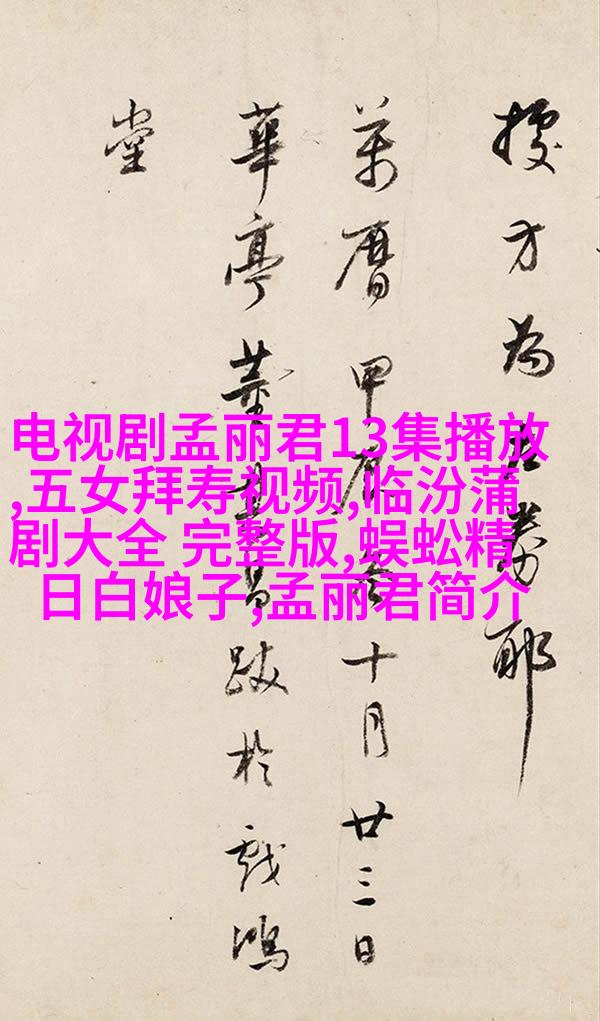 據方為左券耶
萬曆甲辰冬十月廿三日
華亭董其昌跋於戲鴻
堂
电视剧孟丽君13集播放
,五女拜寿视频,临汾蒲
剧大全 完整版,蜈蚣精
日白娘子,孟丽君简介